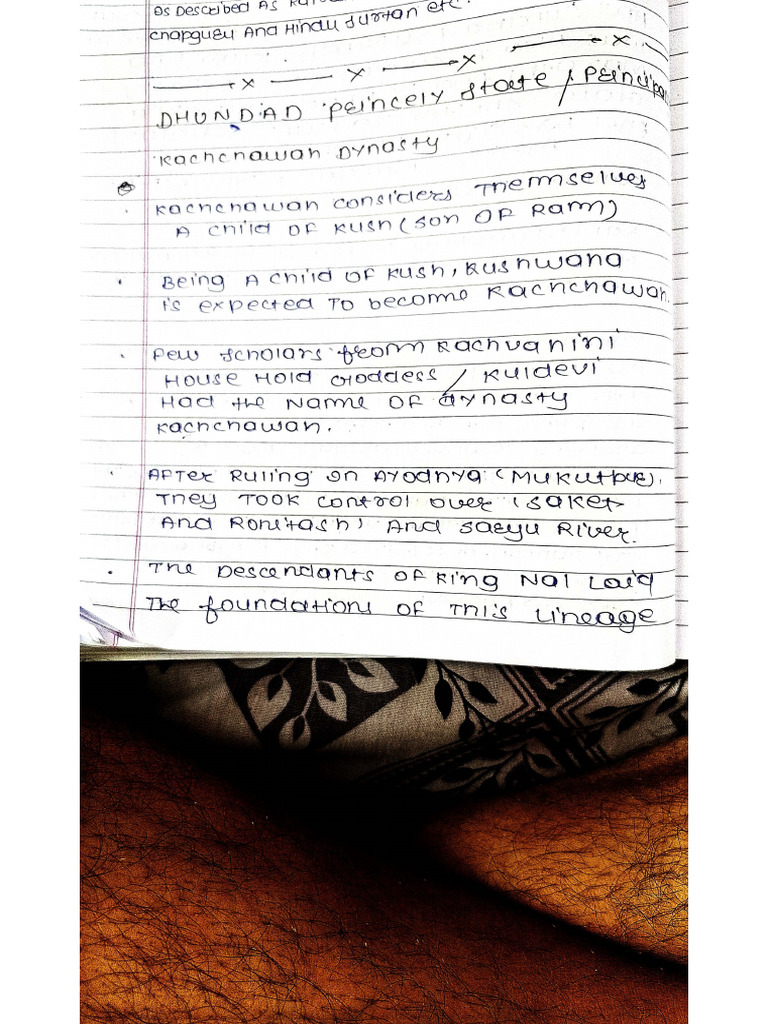 As Described As
Chapguru And Hindu Surtan etc.
DHUNDAD princely state / Principan
Kachchawah Dynasty
Kachchawah considers Themselves
A child OF Kush (son OF Ram)
Being A child OF Kush, Kushwaha
is expected To become Kachchawah.
Few scholars from Kachvahini
House Hold Goddess / Kuldevi
Had the Name OF dynasty
Kachchawah.
After Ruling on Ayodhya (Mukutpur).
They Took control over (Saket
And Rohitash) And Saryu River.
The Descendants of King Nal Laid
The foundations of This Lineage